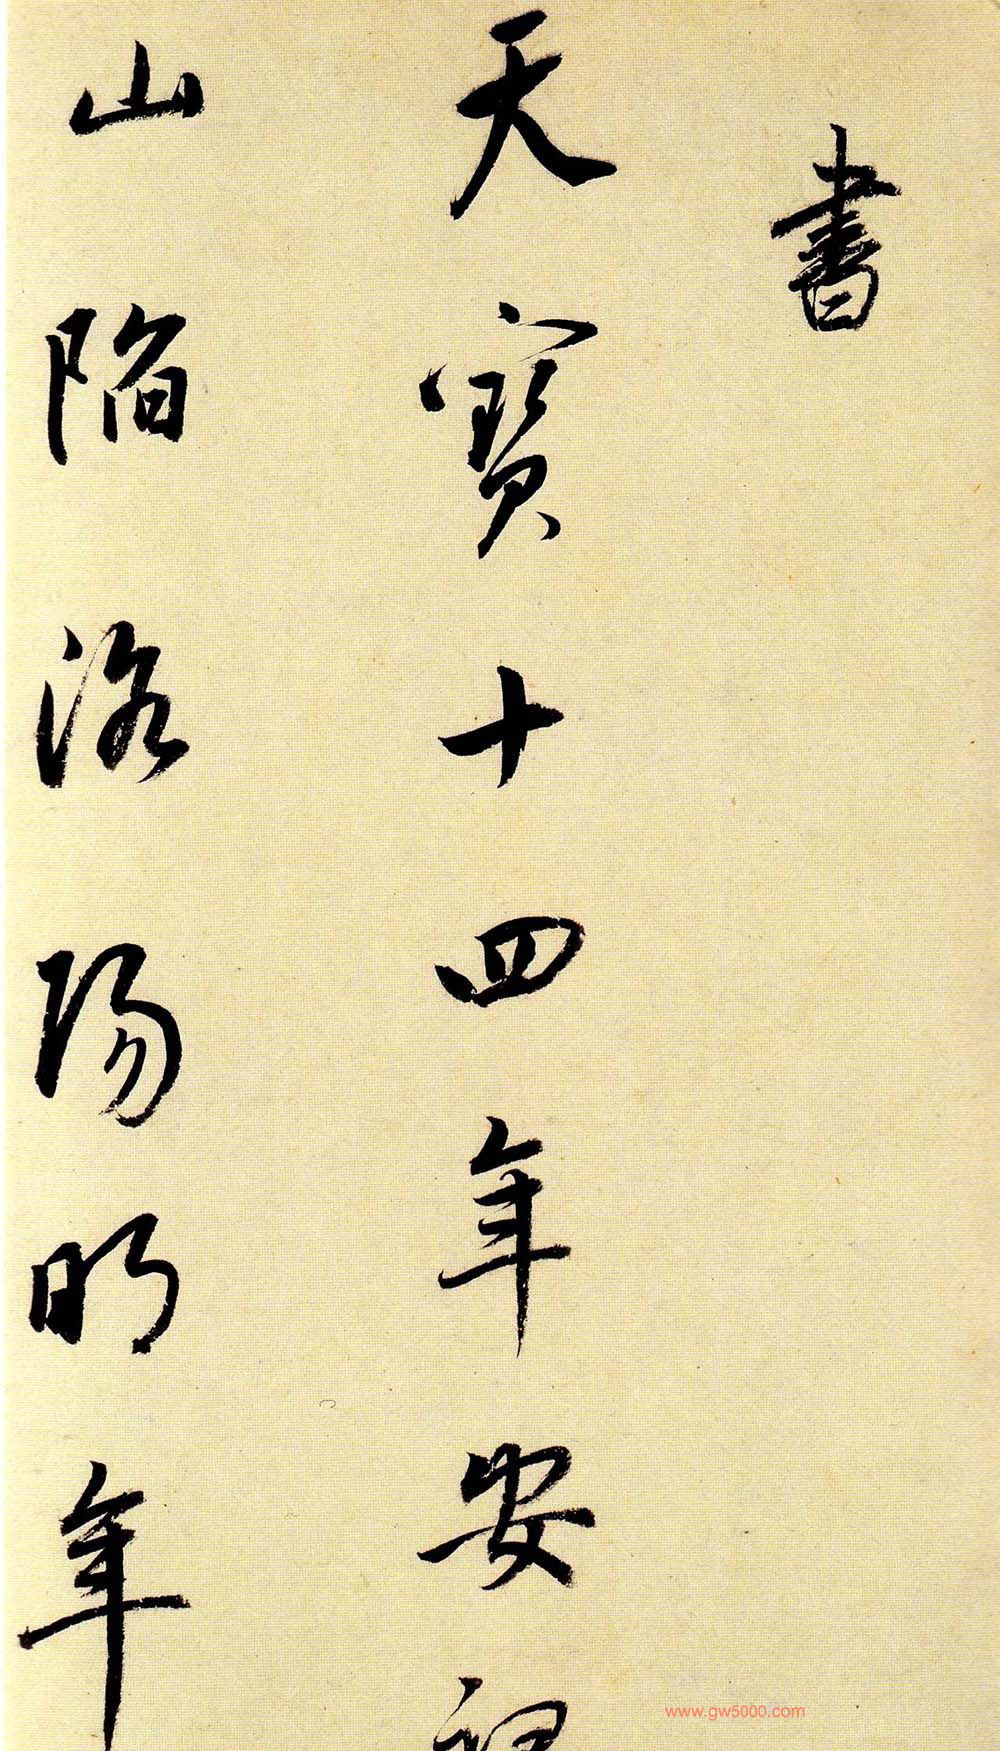 書
天寶十四年安祿
山陷洛陽明年
www.gw5000.com